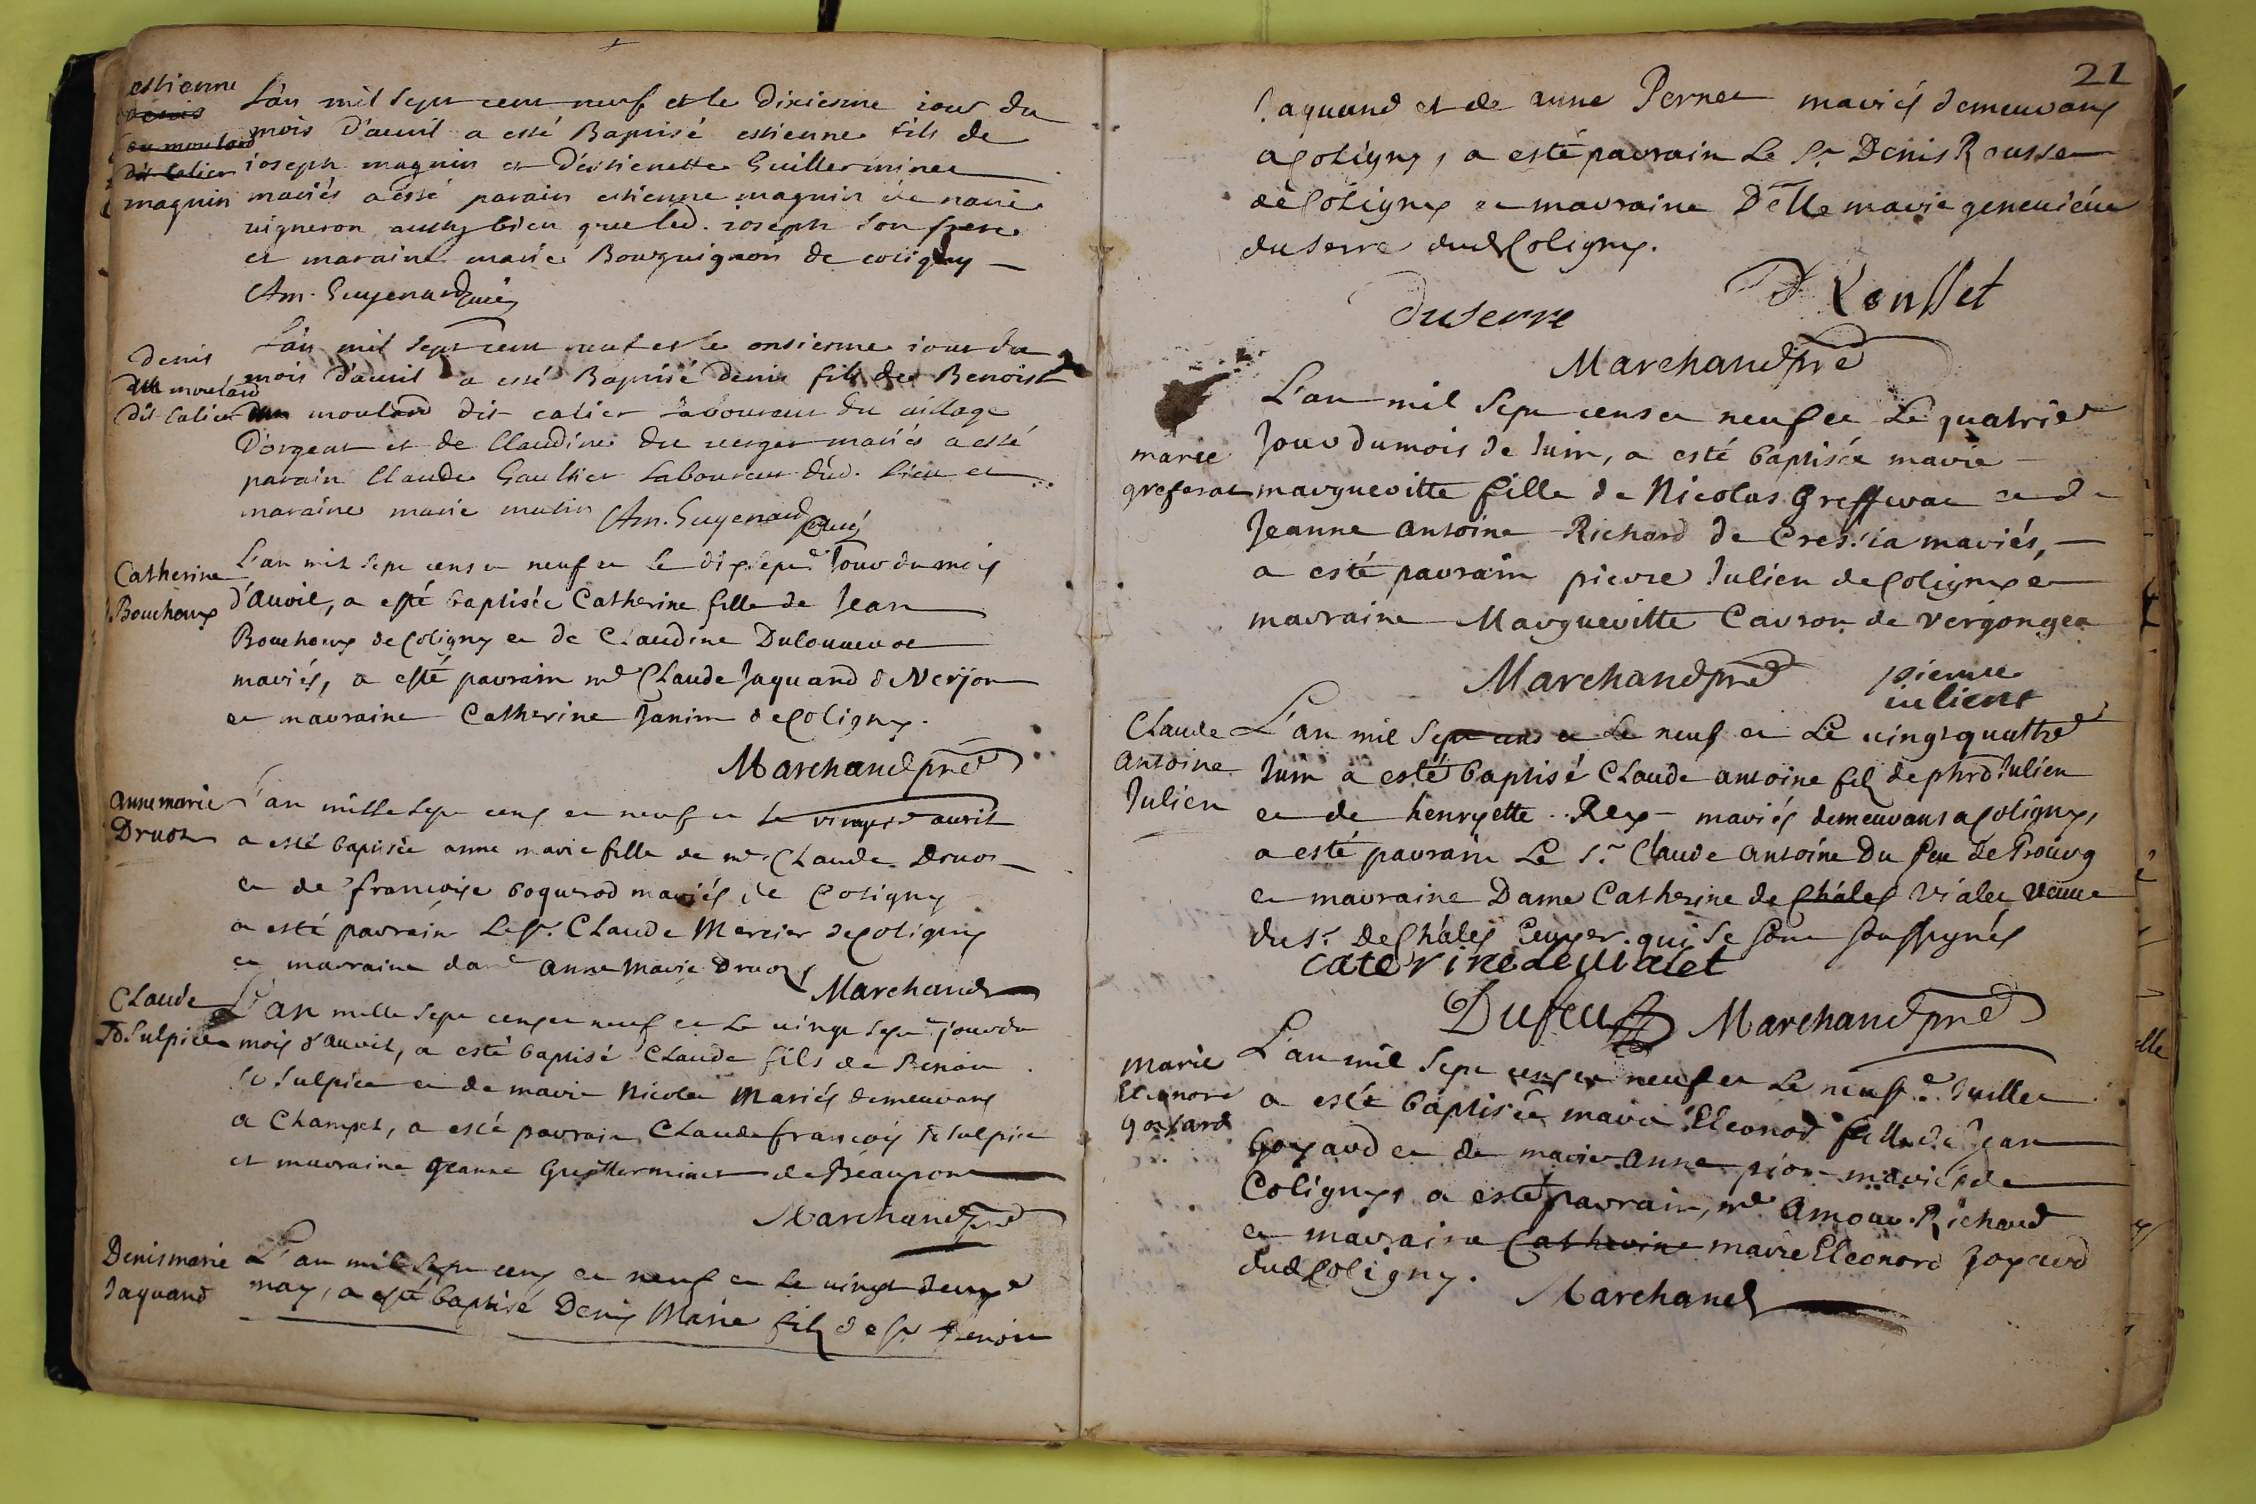 estienne
magnin
L'an mil sept cent neuf et le dixiesme iour du
mois d'auril a esté Baptisé estienne fils de
ioseph magnin et d'estienette Guillerminet
mariés a esté parain estienne magnin de
uigneron aussy bien que led. ioseph son frere
et maraine marie Bourguignon de coligny
Am. Guyenard curé
denis
moulard
dit calier
L'an mil sept cent neuf et le onsiesme iour du
mois d'auril a esté Baptisé denis fils de Benoist
moulard dit calier laboureur du uillage
D'orgeat et de Claudine du uerger mariés a esté
parain Claude Gaultier Laboureur dud. Lieu et
maraine marie mutin Am. Guyenard curé
Catherine
Bouchoux
L'an mil sept cens et neuf et le dixsept.e Jour du mois
d'auril, a esté baptisée Catherine fille de Jean
Bouchoux de Coligny et de Claudine
mariés, a esté parrain m.e Claude Jaquand de Nerjon
et marraine Catherine Janin de Coligny.
Marchand pre
anne marie
Druot
L'an mille sept cens et neuf et le auril
a esté baptisée anne marie fille de m.e Claude Druot
et de francoise boquerod mariés de Coligny
a esté parrain Le Sr. Claude Mercier de Coligny
et marraine dam.e anne Marie Druot Marchand
Claude
St. Sulpice
L'an mille sept cens et neuf et Le uingt sept.e jour du
mois d'auril, a esté baptisé Claude fils de Benoit
St Sulpice et de marie Nicolet Mariés demeurans
a Champel, a esté parrain Claude françois St Sulpice
et marraine Jeanne Guillerminet de Beaupont
Marchand pre
Denis marie
Jaquand
L'an mil sept cens et neuf et le uingt deuxe
may, a esté baptisé Denis Marie fils de Sr Benoit
21
Jaquand et de anne Pernet mariés demeurans
a Coligny, a esté parrain Le Sr Denis Rousset
de Coligny et marraine Delle marie geneuieue
duserre dud Coligny.
Duserre
D Rousset
Marchand pre
marie
greferat
L'an mil sept cens et neuf et Le quatrie
Jour du mois de Juin, a esté baptisée marie
margueritte fille de Nicolas Grefferat et de
Jeanne Antoine Richard de Cressia mariés,
a esté parrain pierre Julien de Coligny et
marraine Margueritte Carron de Vergongea
Marchand pre
pierre
iulient
Claude
Antoine
Julien
L'an mil sept cens et Le neuf et Le uingt quattre
Juin a esté baptisé Claude antoine fils de phrd Julien
et de henryette Rey mariés demeurans a Coligny,
a esté parrain Le Sr. Claude Antoine Du feu de
et marraine Dame Catherine de Chales Vialet veuue
du Sr. De Chales qui se sont soussignés
caterine de uialet
Dufeu Marchand pre
Marie
Eleonore
goyard
L'an mil sept cens et neuf et Le neuf.e Juillet
a esté baptisée marie Eleonord fille de Jean
goyard et de marie anne pion mariés de
Coligny, a esté parrain, m.e Amour Richard
et marraine Catherine marie Eleonord goyard
dud Coligny.
Marchand